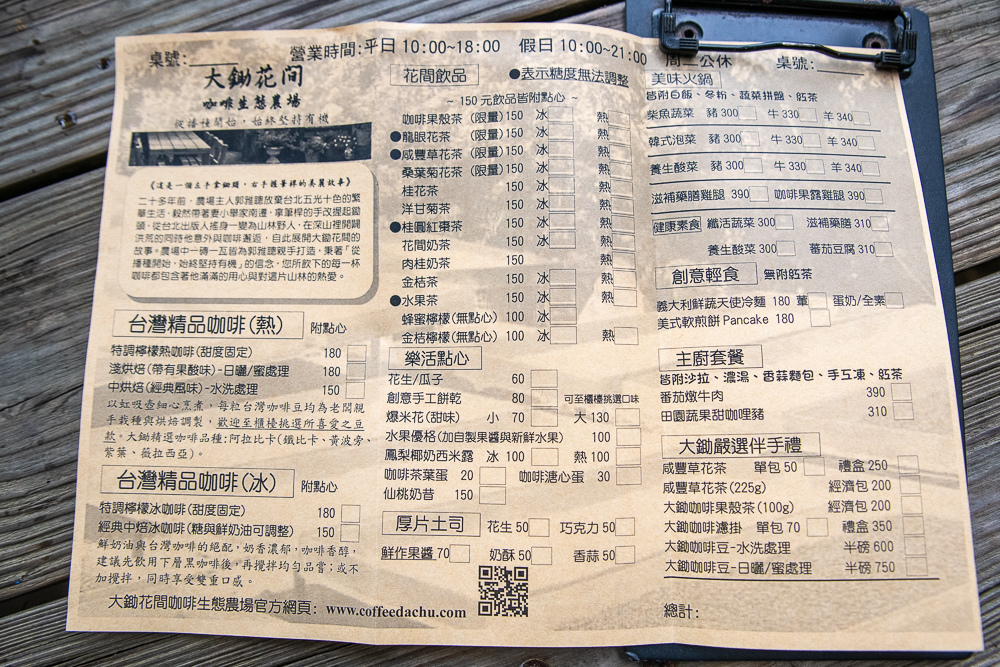 桌號:
營業時間:平日 10:00~18:00 假日 10:00~21:00 周二公休 桌號:
大鋤花間
咖啡生態農場
從播種開始，始終堅持有機
《這是一個左手拿鋤頭，右手握筆桿的美麗故事》
二十多年前，農場主人郭雅聰放棄台北五光十色的繁
華生活，毅然帶著妻小舉家南遷，拿筆桿的手改握起鋤
頭，從台北出版人搖身一變為山林野人，在深山裡開闢
洪荒的同時他意外與咖啡邂逅，自此展開大鋤花間的
故事。農場中一磚一瓦皆為郭雅聰親手打造，秉著「從
播種開始，始終堅持有機」的信念，您所飲下的每一杯
咖啡都包含著他滿滿的用心與對這片山林的熱愛。
台灣精品咖啡(熱) 附點心
特調檸檬熱咖啡(甜度固定) 180
淺烘焙(帶有果酸味)-日曬/蜜處理 180
中烘焙(經典風味)-水洗處理 150
以虹吸壺細心烹煮，每粒台灣咖啡豆均為老闆親
手栽種與烘焙調製，歡迎至櫃檯挑選所喜愛之豆
款。大鋤精選咖啡品種:阿拉比卡(鐵比卡、黃波旁、
紫葉、薇拉西亞)。
台灣精品咖啡(冰) 附點心
特調檸檬冰咖啡(甜度固定) 180
經典中焙冰咖啡(糖與鮮奶油可調整) 150
鮮奶油與台灣咖啡的絕配，奶香濃郁，咖啡香醇，
建議先飲用下層黑咖啡後，再攪拌均勻品嘗；或不
加攪拌，同時享受雙重口感。
大鋤花間咖啡生態農場官方網頁：www.coffeedachu.com
花間飲品 ●表示糖度無法調整
~ 150 元飲品皆附點心 ~
咖啡果殼茶 (限量) 150 冰 熱
●龍眼花茶 (限量) 150 冰 熱
●咸豐草花茶 (限量) 150 冰 熱
桑葉菊花茶 (限量) 150 冰 熱
桂花茶 150 冰 熱
洋甘菊茶 150 冰 熱
●桂圓紅棗茶 150 冰 熱
花間奶茶 150 冰 熱
肉桂奶茶 150 熱
金桔茶 150 冰 熱
●水果茶 150 冰 熱
蜂蜜檸檬(無點心) 100 冰
金桔檸檬(無點心) 100 冰 熱
樂活點心
花生/瓜子 60
創意手工餅乾 80 可至櫃檯挑選口味
爆米花(甜味) 小 70 大 130
水果優格(加自製果醬與新鮮水果) 100
鳳梨椰奶西米露 冰 100 熱 100
咖啡茶葉蛋 20 咖啡溏心蛋 30
仙桃奶昔 150
厚片土司 花生 50 巧克力 50
鮮作果醬 70 奶酥 50 香蒜 50
美味火鍋
皆附白飯、冬粉、蔬菜拼盤、紅茶
柴魚蔬菜 豬 300 牛 330 羊 340
韓式泡菜 豬 300 牛 330 羊 340
養生酸菜 豬 300 牛 330 羊 340
滋補藥膳雞腿 390 咖啡果露雞腿 390
健康素食 纖活蔬菜 300 滋補藥膳 310
養生酸菜 300 蕃茄豆腐 310
創意輕食 無附紅茶
義大利鮮蔬天使冷麵 180 葷 蛋奶/全素
美式軟煎餅 Pancake 180
主廚套餐
皆附沙拉、濃湯、香蒜麵包、手工凍、紅茶
蕃茄燉牛肉 390
田園蔬果甜咖哩豬 310
大鋤嚴選伴手禮
咸豐草花茶 單包 50 禮盒 250
咸豐草花茶(225g) 經濟包 200
大鋤咖啡果殼茶(100g) 經濟包 200
大鋤咖啡濾掛 單包 70 禮盒 350
大鋤咖啡豆-水洗處理 半磅 600
大鋤咖啡豆-日曬/蜜處理 半磅 750
總計: